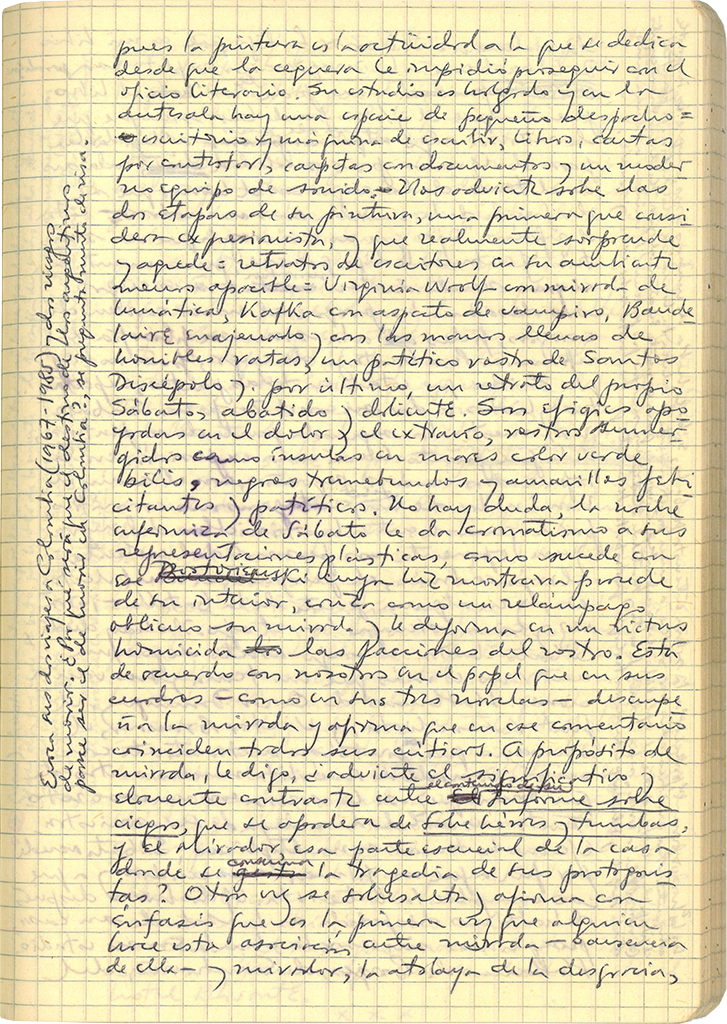 pues la pintura es la actividad a la que se dedica
desde que la ceguera le impidió proseguir con el
oficio literario. Su estudio es holgado y en la
antesala hay una especie de pequeño despacho =
escritorio y máquina de escribir, libros, cartas
por contestar, carpetas con documentos y un moder
no equipo de sonido. Nos advierte sobre las
dos etapas de su pintura, una primera que consi
dera expresionista, y que realmente sorprende
y agrede = retratos de escritores en su ambiente
menos apacible = Virginia Woolf con mirada de
lunática, Kafka con aspecto de vampiro, Baude
laire enajenado y con las manos llenas de
horribles ratas, un patético rostro de Santos
Discépolo y, por último, un retrato del propio
Sábato, abatido y doliente. Son efigies apo
yadas en el dolor y el extravío, rostros sumer
gidos como ínsulas en mares color verde
bilis, negros tremebundos y amarillos feti
citantes y patéticos. No hay duda, la noche
enfermiza de Sábato le da cromatismo a sus
representaciones plásticas, como sucede con
ese Dostoievski cuya luz mortecina procede
de su interior, cruza como un relámpago
oblicuo su mirada y le deforma en un rictus
homicida las facciones del rostro. Está
de acuerdo con nosotros en el papel que en sus
cuadros – como en sus tres novelas – desempe
ña la mirada y afirma que en ese comentario
coinciden todos sus críticos. A propósito de
mirada, le digo, ¿advierte el significativo y
elocuente contraste entre el contenido de su Informe sobre
ciegos, que se apodera de Sobre héroes y tumbas,
y el Mirador, esa parte esencial de la casa
donde se consuma la tragedia de sus protagonis
tas? Otra vez se sobresalta y afirma con
énfasis que es la primera vez que alguien
hace esta asociación entre mirada – o ausencia
de ella – y mirador, la atalaya de la desgracia,
Evoca sus dos viajes a Colombia (1967-1985) y dos riesgos
de morir. ¿Por qué será que el destino de
parece ser el de morir en Colombia?, se pregunta muerto de risa.